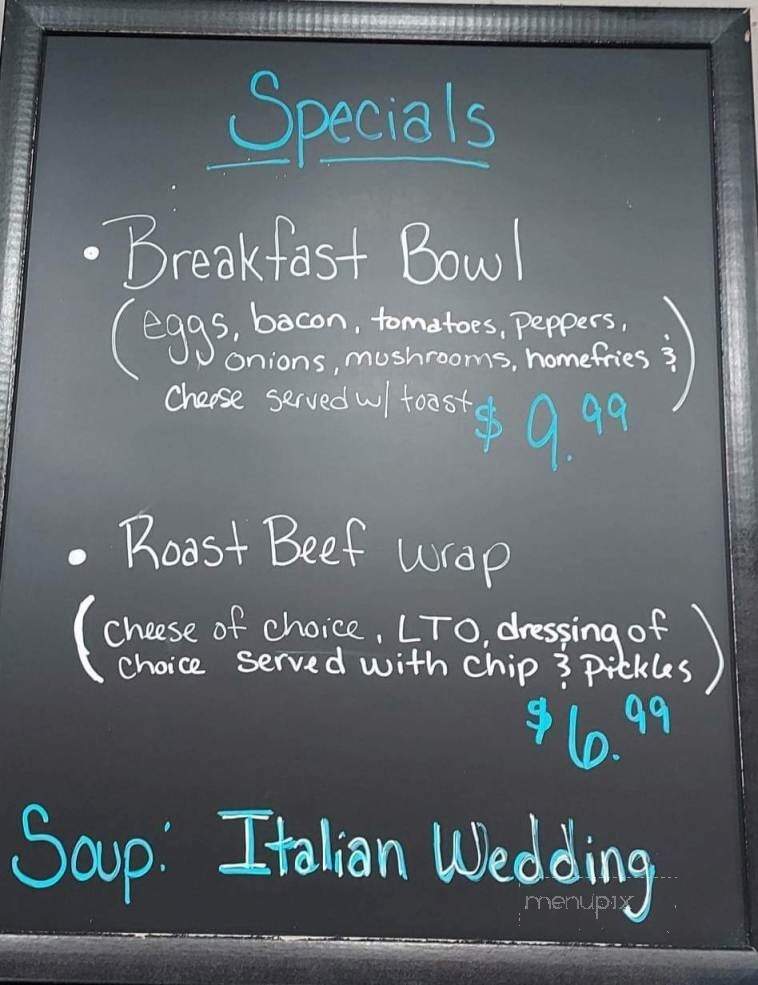 Specials
• Breakfast Bowl
(eggs, bacon, tomatoes, peppers,
onions, mushrooms, homefries &
cheese served w/ toast)
$9.99
• Roast Beef wrap
(cheese of choice, LTO, dressing of
choice served with chip & pickles)
$6.99
Soup: Italian Wedding
menupix